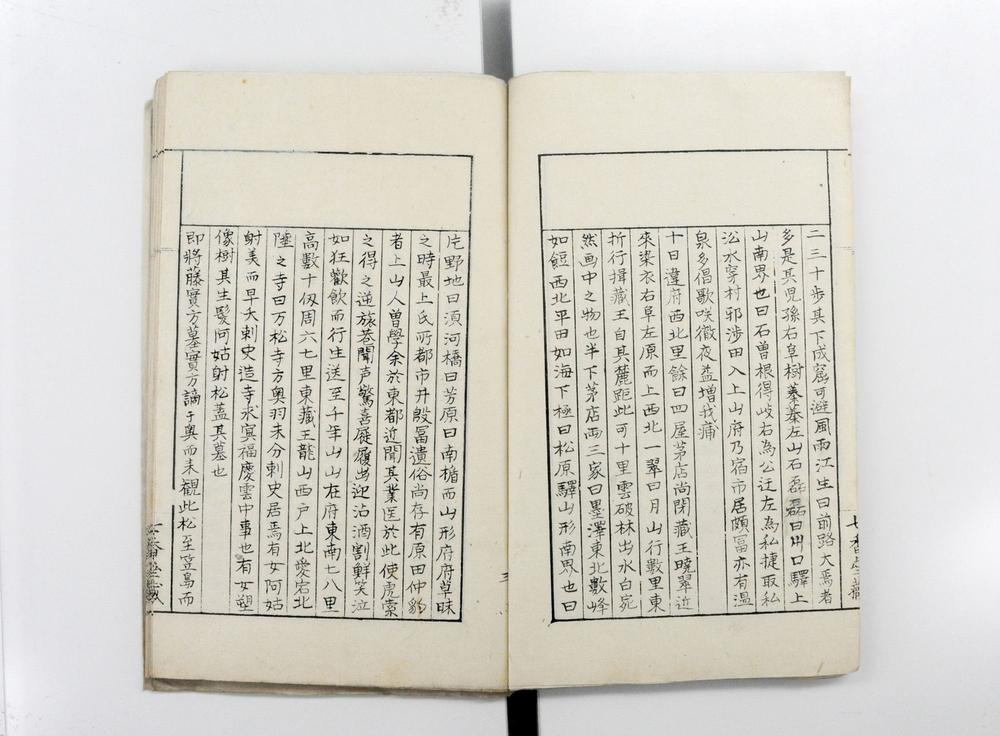 二三十步其下成窟可避風雨江生曰前路大焉者
多是其児孫右阜樹蓁蓁左山石磊磊曰川口驛上
山南界也曰石曽根得岐右為公迂左為私捷取私
沿水穿村郭涉田入上山府乃宿市居頗冨亦有温
泉多倡歌咲徹夜益增我痡
十日違府西北里餘曰四屋茅店尚閉藏王曉翠近
來染衣右草左原而上西北一翠曰月山行數里東
折行揖藏王自其麓距此可十里雲破林出水白宛
然画中之物也半下茅店两三家曰墨澤東北數峰
如饀西北平田如海下極曰松原驛山形南界也曰
片野地曰須河橋曰芳原曰南楯而山形府府草昧
之時最上氏所都市井殷冨遺俗尚存有原田仲
者上山人曽學余於東都近聞其業医於此使虎索
之得之逆旅巷聞声驚喜屣履出迎沽酒割鮮笑泣
如狂歡飲而行生送至千年山山在府東南七八里
高數十仭周六七里東藏王龍山西戸上北愛宕北
陲之寺曰万松寺方奥羽未分刺史居焉有女阿姑
射美而早夭刺史造寺求㝠福慶雲中事也有女塑
像樹其生髮阿姑射松蓋其墓也
即將藤實方墓實方謫于奥而未觀此松至笠島而
三